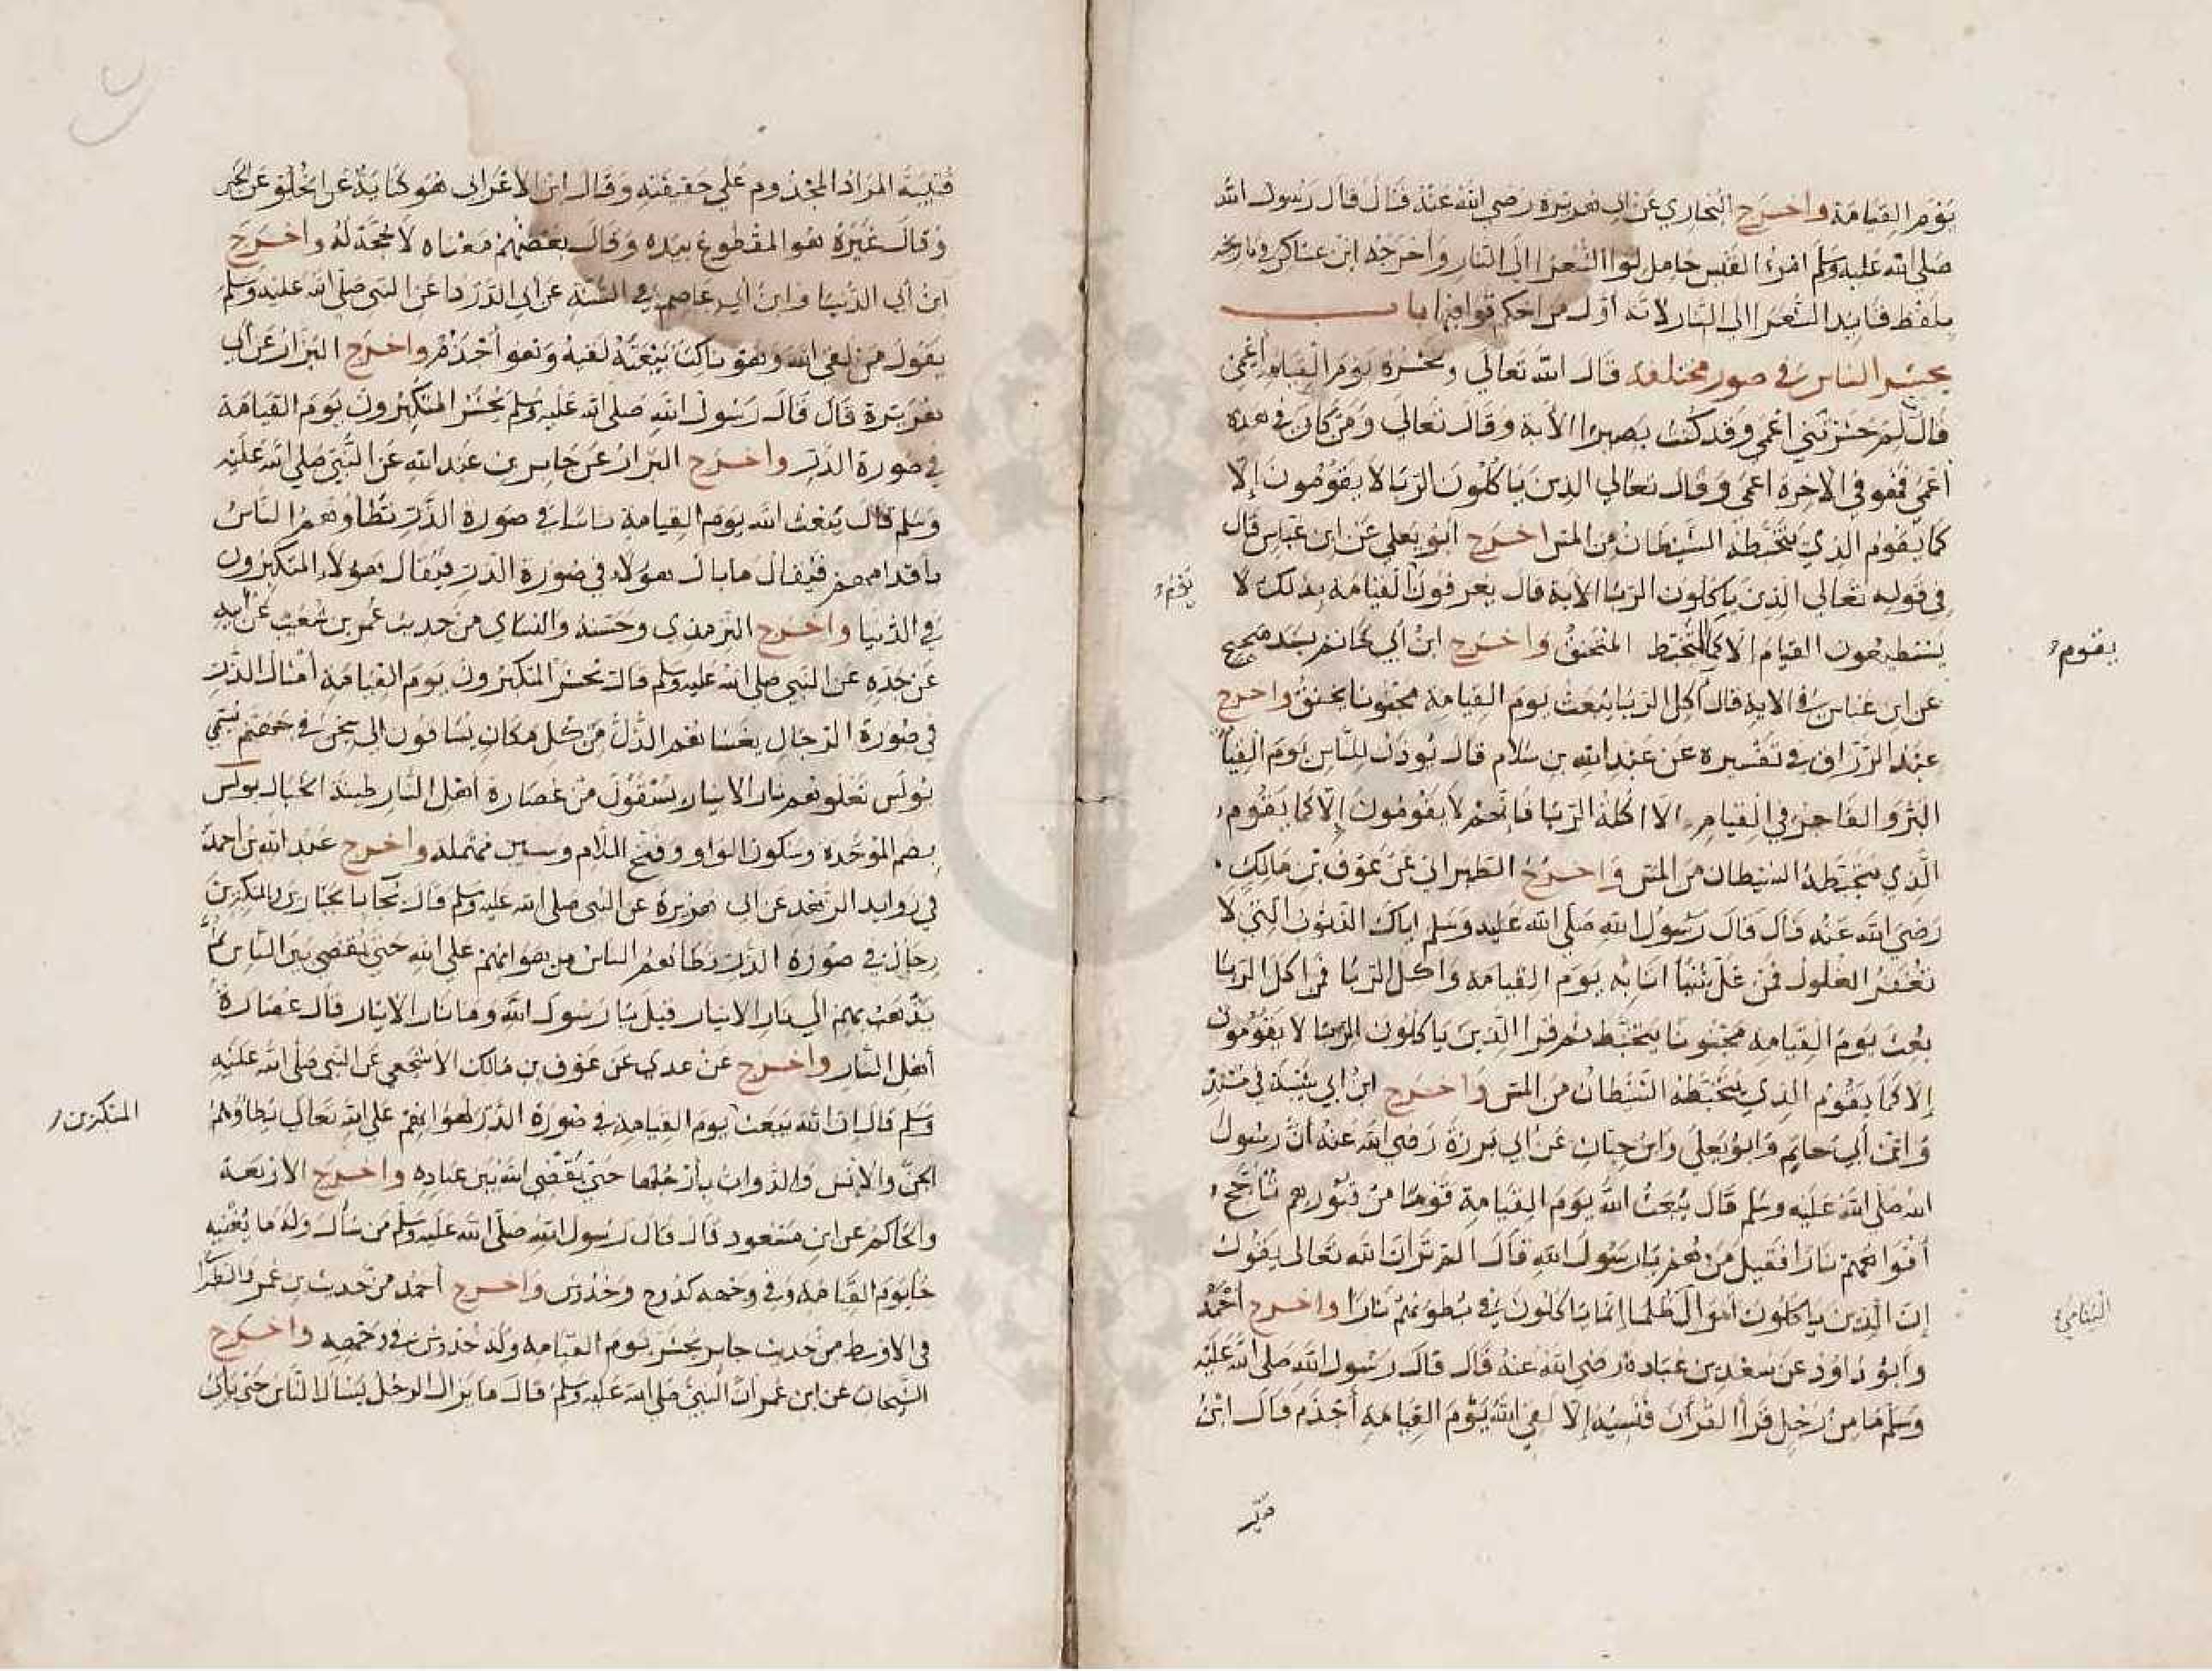 يوم القيامة واخرج البخاري عن ابي هريرة رضي الله عنه قال قال رسول الله
صلى الله عليه وسلم امرء القيس حامل لوا الشعرا الى النار واخرجه ابن عساكر في تاريخه
بلفظ قايد الشعرا الى النار لانه اول من احكم قوافيها باب
يحشر الناس في صور مختلفة قال الله تعالي ونحشره يوم القيامة أعمى
قال لم حشرتني أعمى وقد كنت بصيرا الأية وقال تعالى ومن كان في هذه
أعمى فهو في الاخرة اعمى وقال تعالي الذين ياكلون الربا لا يقومون إلا
كما يقوم الذي يتخبطه الشيطان من المس اخرج ابو يعلي عن ابن عباس قال
في قوله تعالي الذين ياكلون الربا الاية قال يعرفون القيامة بذلك لا
يوم
يستطيعون القيام الا كما المتخبط المنخنق واخرج ابن ابي حاتم بسند صحيح
يقوم
عن ابن عباس في الاية قال اكل الربا يبعث يوم القيامة مجنونا يخنق واخرج
عبد الرزاق في تفسيره عن عبد الله بن سلام قال يوذن للناس يوم القيا
البر والفاجر في القيام الا اكلة الربا فانهم لا يقومون إلا كما يقوم
الذي يتخبطه الشيطان من المس واخرج الطبراني عن عوف بن مالك
رضي الله عنه قال قال رسول الله صلى الله عليه وسلم اياك الذنوب التي لا
تغفر الغلول فمن غل شيئا اتا به يوم القيامة واكل الربا فمن اكل الربا
بعث يوم القيامة مجنونا يتخبط ثم قرا الذين ياكلون الربا لا يقومون
إلا كما يقوم الذي يتخبطه الشيطان من المس واخرج ابن ابي شيبة في مسنده
وابن أبي حاتم وابو يعلى وابن حبان عن ابي برزة رضي الله عنه أن رسول
الله صلى الله عليه وسلم قال يبعث الله يوم القيامة قوما من قبورهم تأجج
أفواههم نارا فقيل من هم يا رسول الله قال الم تر ان الله تعالى يقول
إن الذين ياكلون اموال ظلما إنما ياكلون في بطونهم نارا واخرج أحمد
اليتامى
وابو داود عن سعد بن عبادة رضي الله عنه قال قال رسول الله صلى الله عليه
وسلم ما من رجل قرا القرآن فنسيه إلا لقي الله يوم القيامة أجذم قال ابن
قتيبة المراد المجذوم علي حقيقته وقال ابن الاعرابي هو كناية عن الخلو عن الخير
وقال غيره هو المقطوع بيده وقال بعضهم معناه لا حجة له واخرج
ابن أبي الدنيا وابن أبي عاصم في السنة عن أبي الدردا عن النبي صلى الله عليه وسلم
يقول من لقى الله وهو ناكث بيعته لقيه وهو أجذم واخرج البزار عن أبي
هريرة قال قال رسول الله صلى الله عليه وسلم يحشر المتكبرون يوم القيامة
في صورة الذر واخرج البزار عن جابر بن عبد الله عن النبي صلى الله عليه
وسلم قال يبعث الله يوم القيامة ناسا في صورة الذر تطاوهم الناس
باقدامهم فيقال ما بال هولاء في صورة الذر فيقال هولاء المتكبرون
في الدنيا واخرج الترمذي وحسنه والنساي من حديث عمر بن شعيب عن أبيه
عن جده عن النبي صلى الله عليه وسلم قال تحشر المتكبرون يوم القيامة أمثال الذر
في صورة الرجال يغشاهم الذل من كل مكان يساقون الى سجن في جهنم تسمي
بولس تعلوهم نار الانيار يسقون من عصارة أهل النار طينة الخبال بولس
بضم الموحدة وسكون الواو وفتح اللام وسين مهملة واخرج عبد الله بن احمد
في زوايد الزهد عن ابي هريرة عن النبي صلى الله عليه وسلم قال يجا بالجبارين والمتكبرين
رجال في صورة الذر تطاهم الناس من هوانهم على الله حتى يقضى بين الناس ثم
يذهب بهم الي نار الانيار قيل يا رسول الله وما نار الانيار قال عصارة
أهل النار واخرج عن عدي عن عوف بن مالك الاشجعي عن النبي صلى الله عليه
وسلم قال ان الله يبعث يوم القيامة في صورة الذر لهوانهم على الله تعالى يطاوهم
المتكبرين
الجن والانس والدواب بأرجلها حتى يقضى الله بين عباده واخرج الاربعة
والحاكم عن ابن مسعود قال قال رسول الله صلى الله عليه وسلم من سأل وله ما يغنيه
جا يوم القيامة وفي وجهه كدوح وخدوش واخرج أحمد من حديث بن عمر والطبرا
في الاوسط من حديث جابر يحشر يوم القيامة وله خدوش في وجهه واخرج
الشيخان عن ابن عمر ان النبي صلى الله عليه وسلم قال ما يزال الرجل يسال الناس حتى ياتي